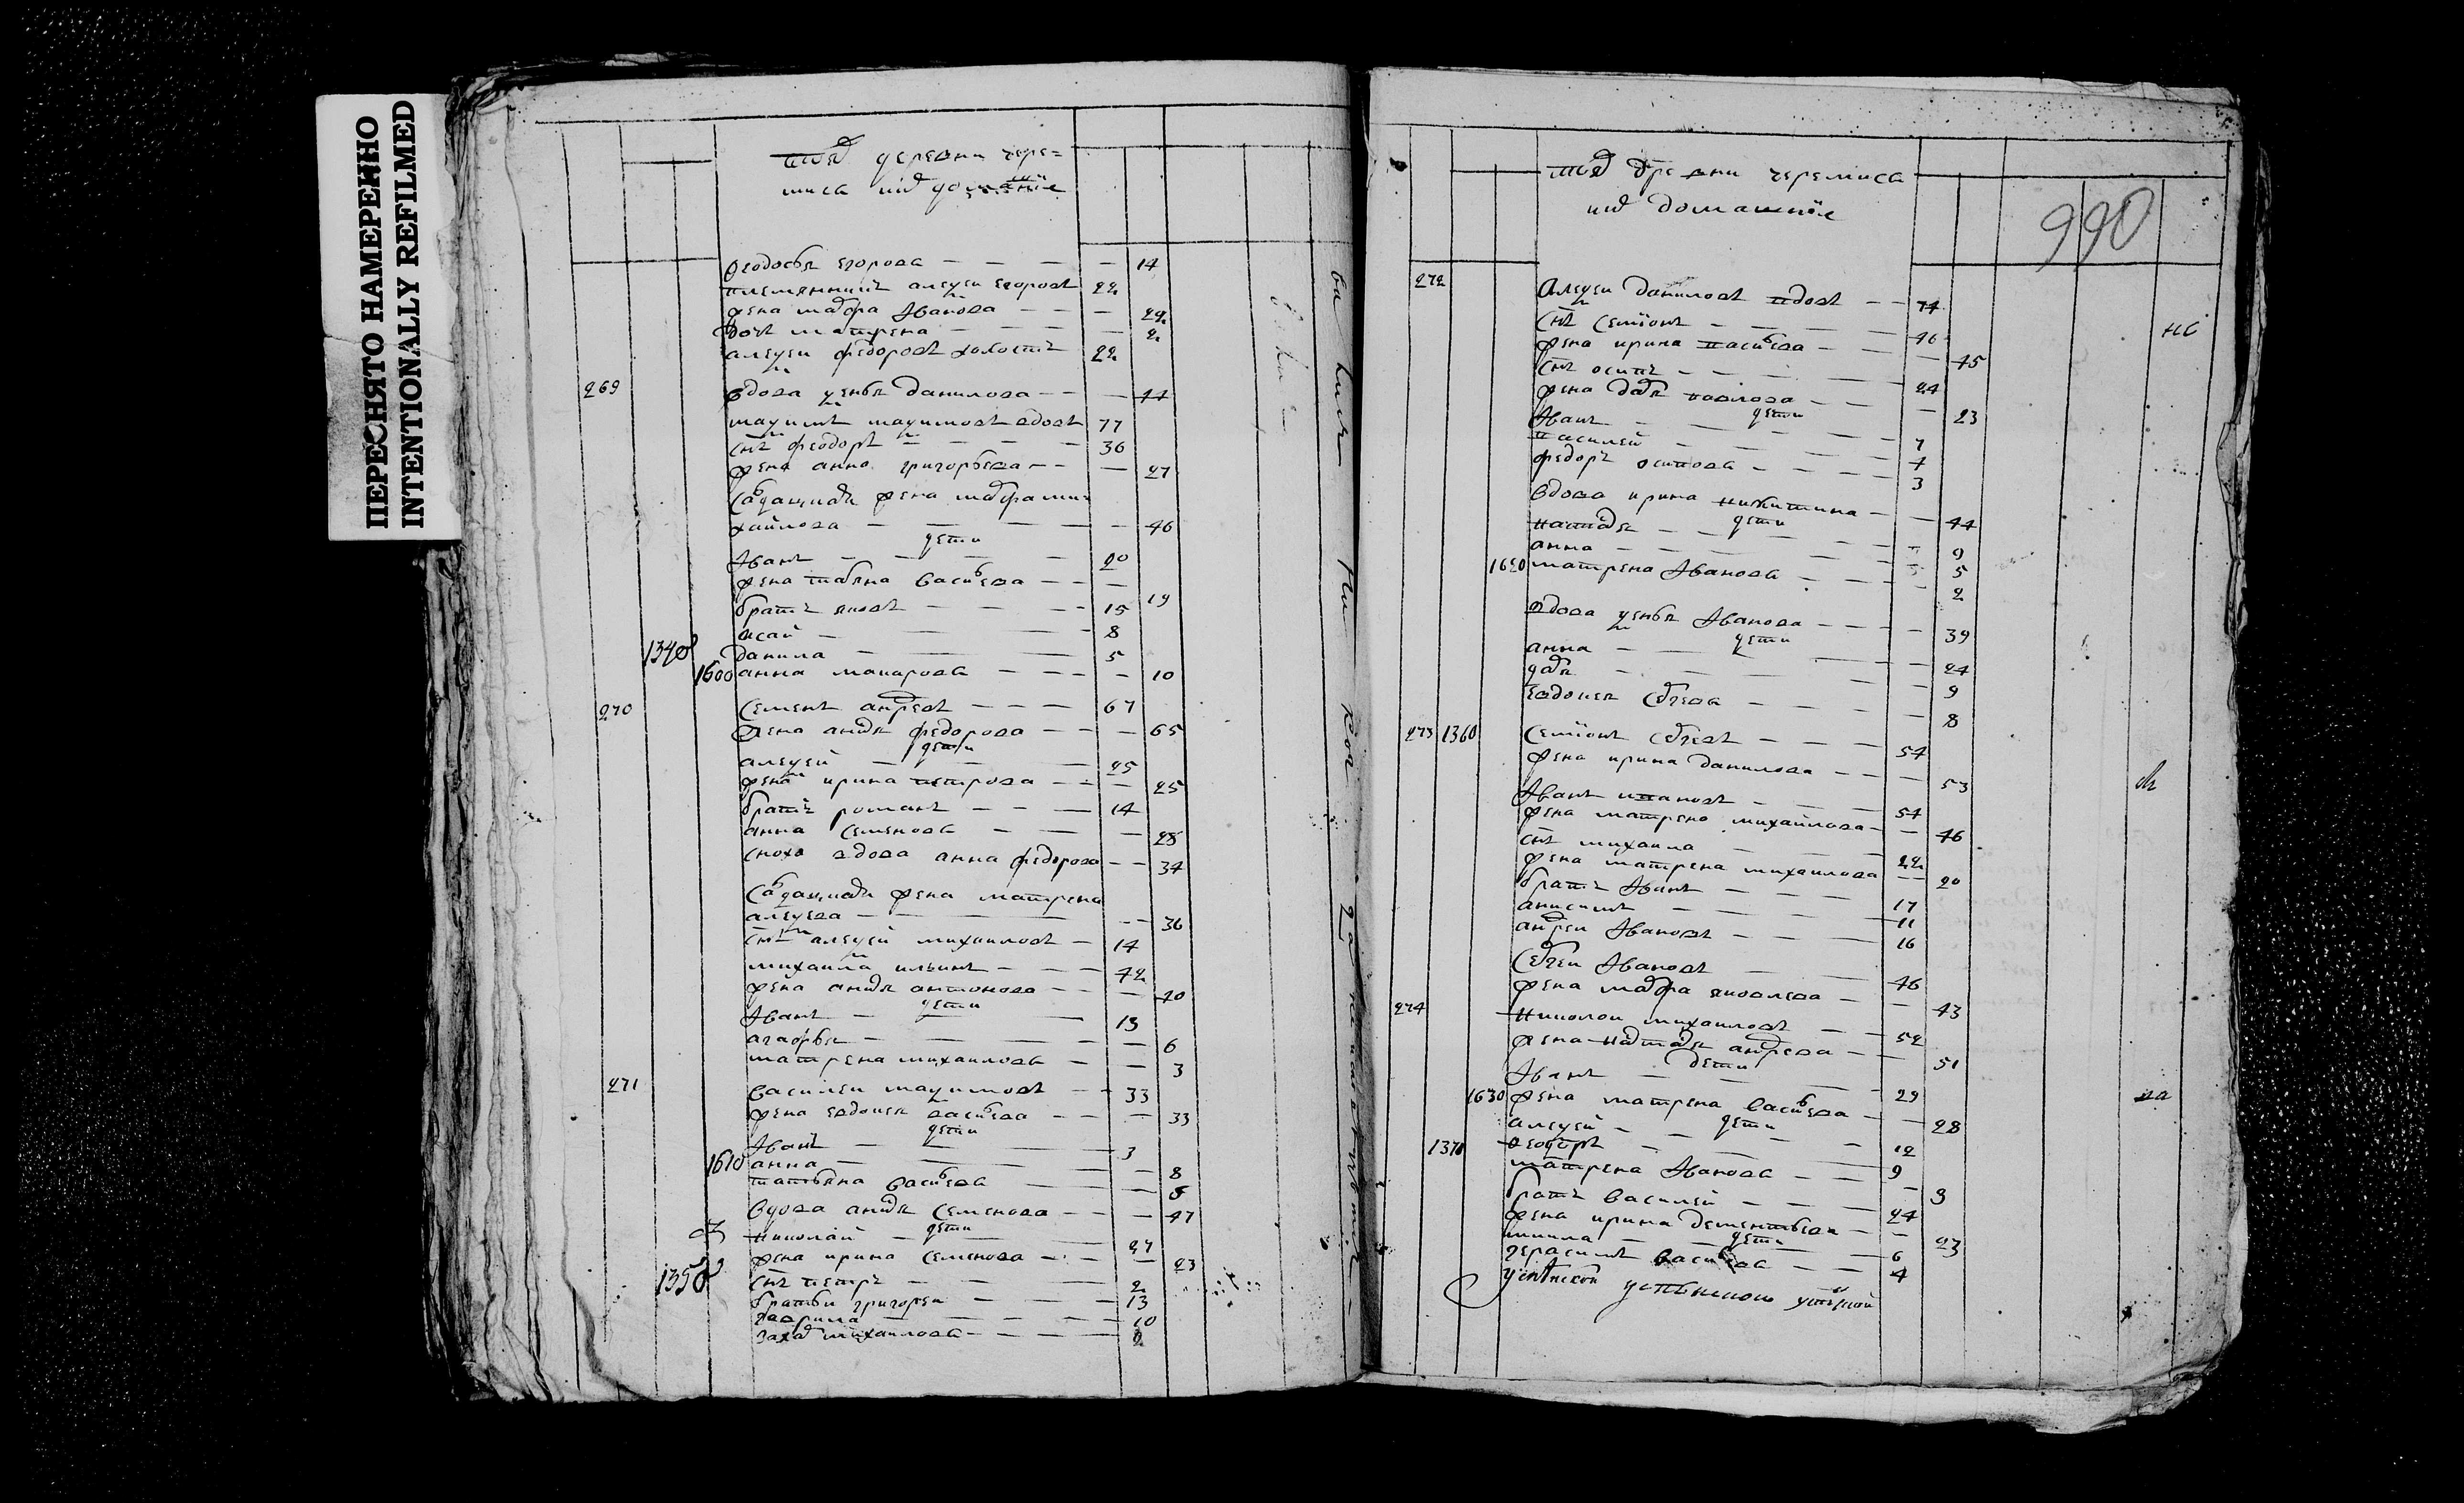 ПЕРЕСНЯТО НАМЕРЕННО
INTENTIONALLY REFILMED
тоя деревни чере=
миса их домашние
феодосья егорова — 14
племянникъ алексеи егоровъ 22
жена мавра Иванова — 22
дочь матрена — 2
алексеи федоровъ холостъ 22
269 вдова ксенья данилова — 44
максимъ максимовъ вдовъ 77
снъ феодоръ — 36
жена анна григорьева — 27
салдацкая жена мавра ми
хайлова — 46
дети
Иванъ — 20
жена татьяна васильева — 19
братъ яковъ — 15
исай — 8
1340 данила — 5
1600 анна макарова — 10
270 семенъ андреевъ — 67
жена анна федорова — 65
дети
алексей — 25
жена ирина петрова — 25
братъ романъ — 14
анна семенова — 28
сноха вдова анна федорова — 34
салдацкая жена матрена
алексеева — 36
снъ алексей михаиловъ — 14
михаила ильинъ — 42
жена анна антонова — 40
дети
Иванъ — 13
агафья — 6
матрена михаилова — 3
271 василеи максимовъ — 33
жена евдокея васильева — 33
дети
Иванъ — 3
1610 анна — 8
татьяна васильева — 5
вдова анна семенова — 47
дети
николай — 27
жена ирина семенова — 23
1350 снъ петръ — 2
братьи григореи — 13
гаврила — 10
захаръ михаиловы — 8
тоя древни черемиса
их домашние
990
272 Алексеи даниловъ вдовъ — 74
снъ семионъ — 46
нс
жена ирина васильева — 45
снъ осипъ — 24
жена дарья павлова — 23
дети
Иванъ — 7
василей — 4
федоръ осиповы — 3
вдова ирина никитина — 44
дети
наталья — 9
анна — 5
1620 матрена Иванова — 2
вдова ксенья Иванова — 39
дети
анна — 24
дарья — 9
евдокея сергеева — 8
273 1360 семионъ сергеевъ — 54
жена ирина данилова — 53
Иванъ ивановъ — 54
жена матрена михайлова — 46
снъ михаила — 22
жена матрена михаилова — 20
братъ Иванъ — 17
анисимъ — 11
андреи Ивановъ — 16
сергеи Ивановъ — 46
жена мавра яковлева — 43
274 николаи михаиловъ — 52
жена наталья андреева — 51
дети
Иванъ — 29
1630 жена матрена васильева — 28
на
дети
алексей — 12
1370 феодоръ — 9
матрена Иванова — 3
братъ василей — 24
жена ирина дементьева — 23
дети
микила — 6
герасимъ васильевы — 4